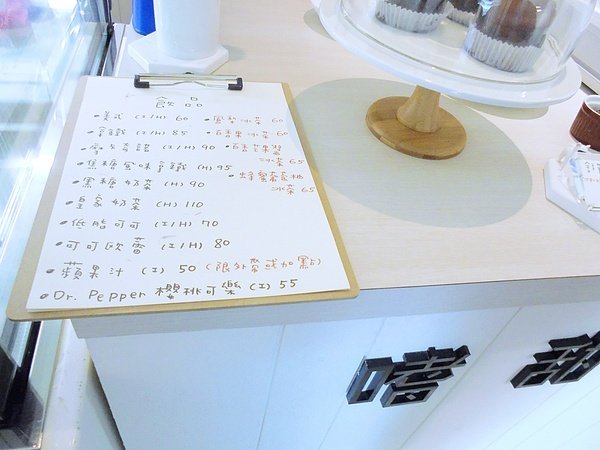 飲品
美式 (I/H) 60
拿鐵 (I/H) 85
摩卡奇諾 (I/H) 90
焦糖風味拿鐵 (H) 95
黑糖奶茶 (H) 90
皇家奶茶 (H) 110
低脂可可 (I/H) 70
可可歐蕾 (I/H) 80
蘋果汁 (I) 50 (限外帶或加點)
Dr. Pepper 櫻桃可樂 (I) 55
鳳梨冰茶 60
百香果冰茶 60
冰茶 65
蜂蜜蜜桃
冰茶 65
嗜甜